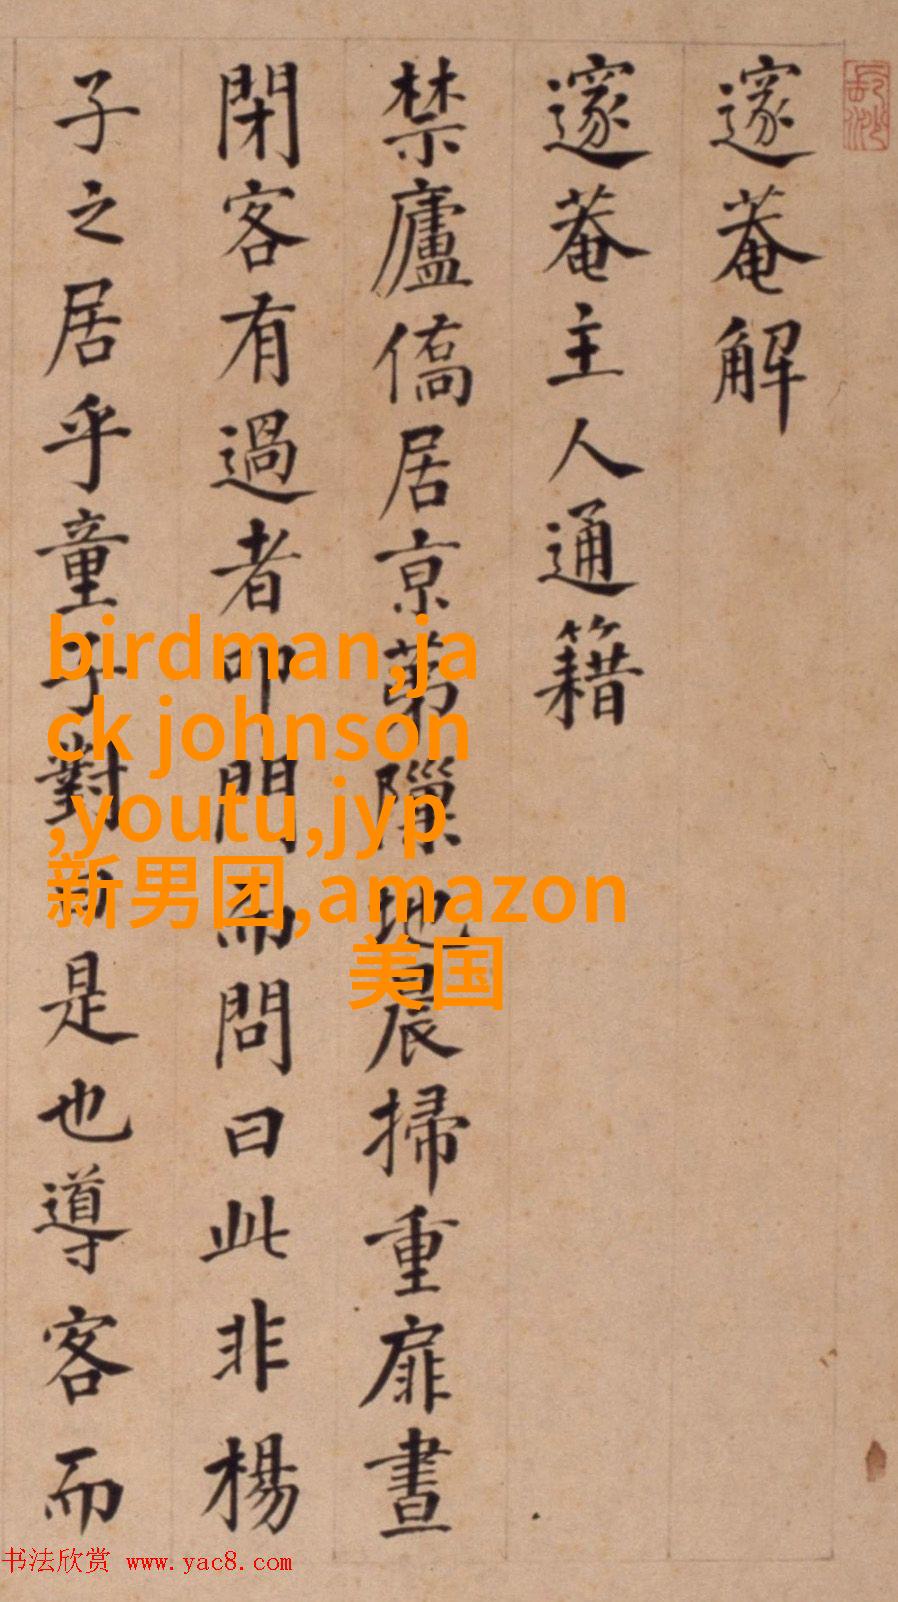 邃菴解
邃菴主人通籍
禁廬僑居京第隟地晨掃重扉晝
閉客有過者叩門而問曰此非楊
子之居乎童子對曰是也導客而
birdman,ja
ck johnson
,youtu,jyp
新男团,amazon
美国
书法欣赏 www.yac8.com